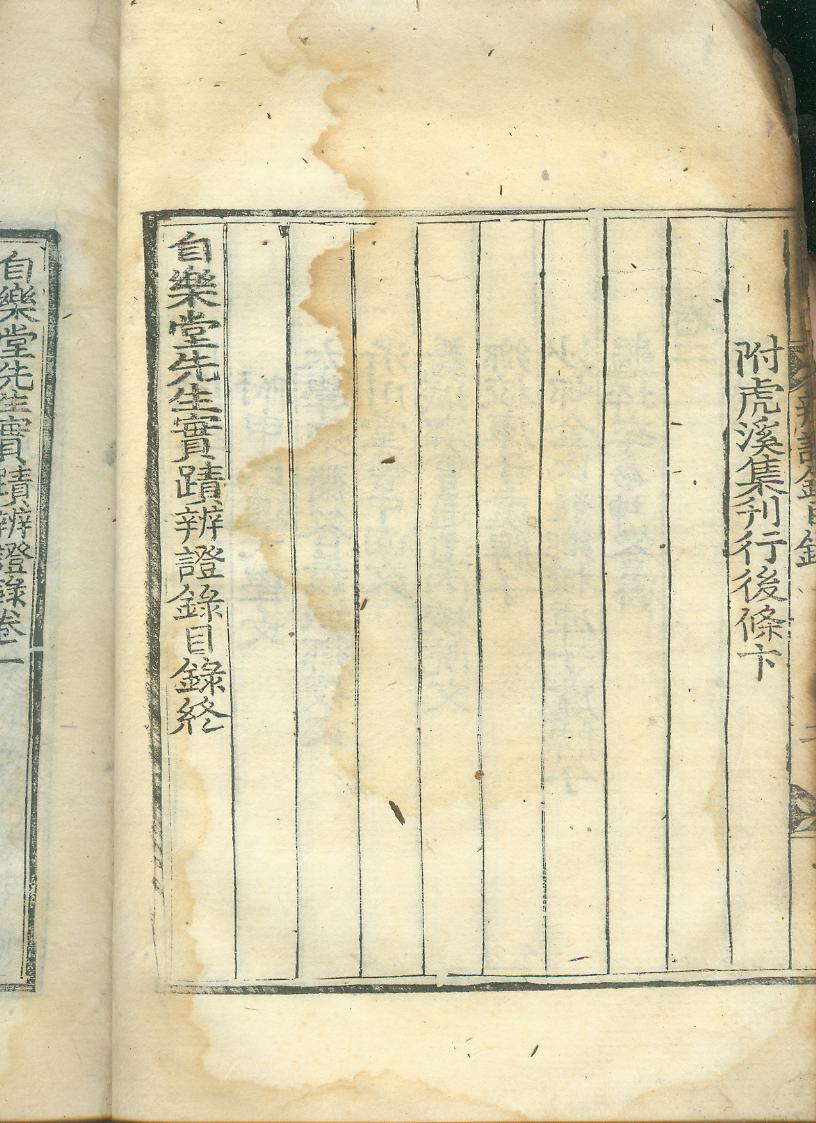 辨證錄目錄
附虎溪集刊行後條卞
自樂堂先生實蹟辨證錄目錄終
自樂堂先生實蹟辨證錄卷二